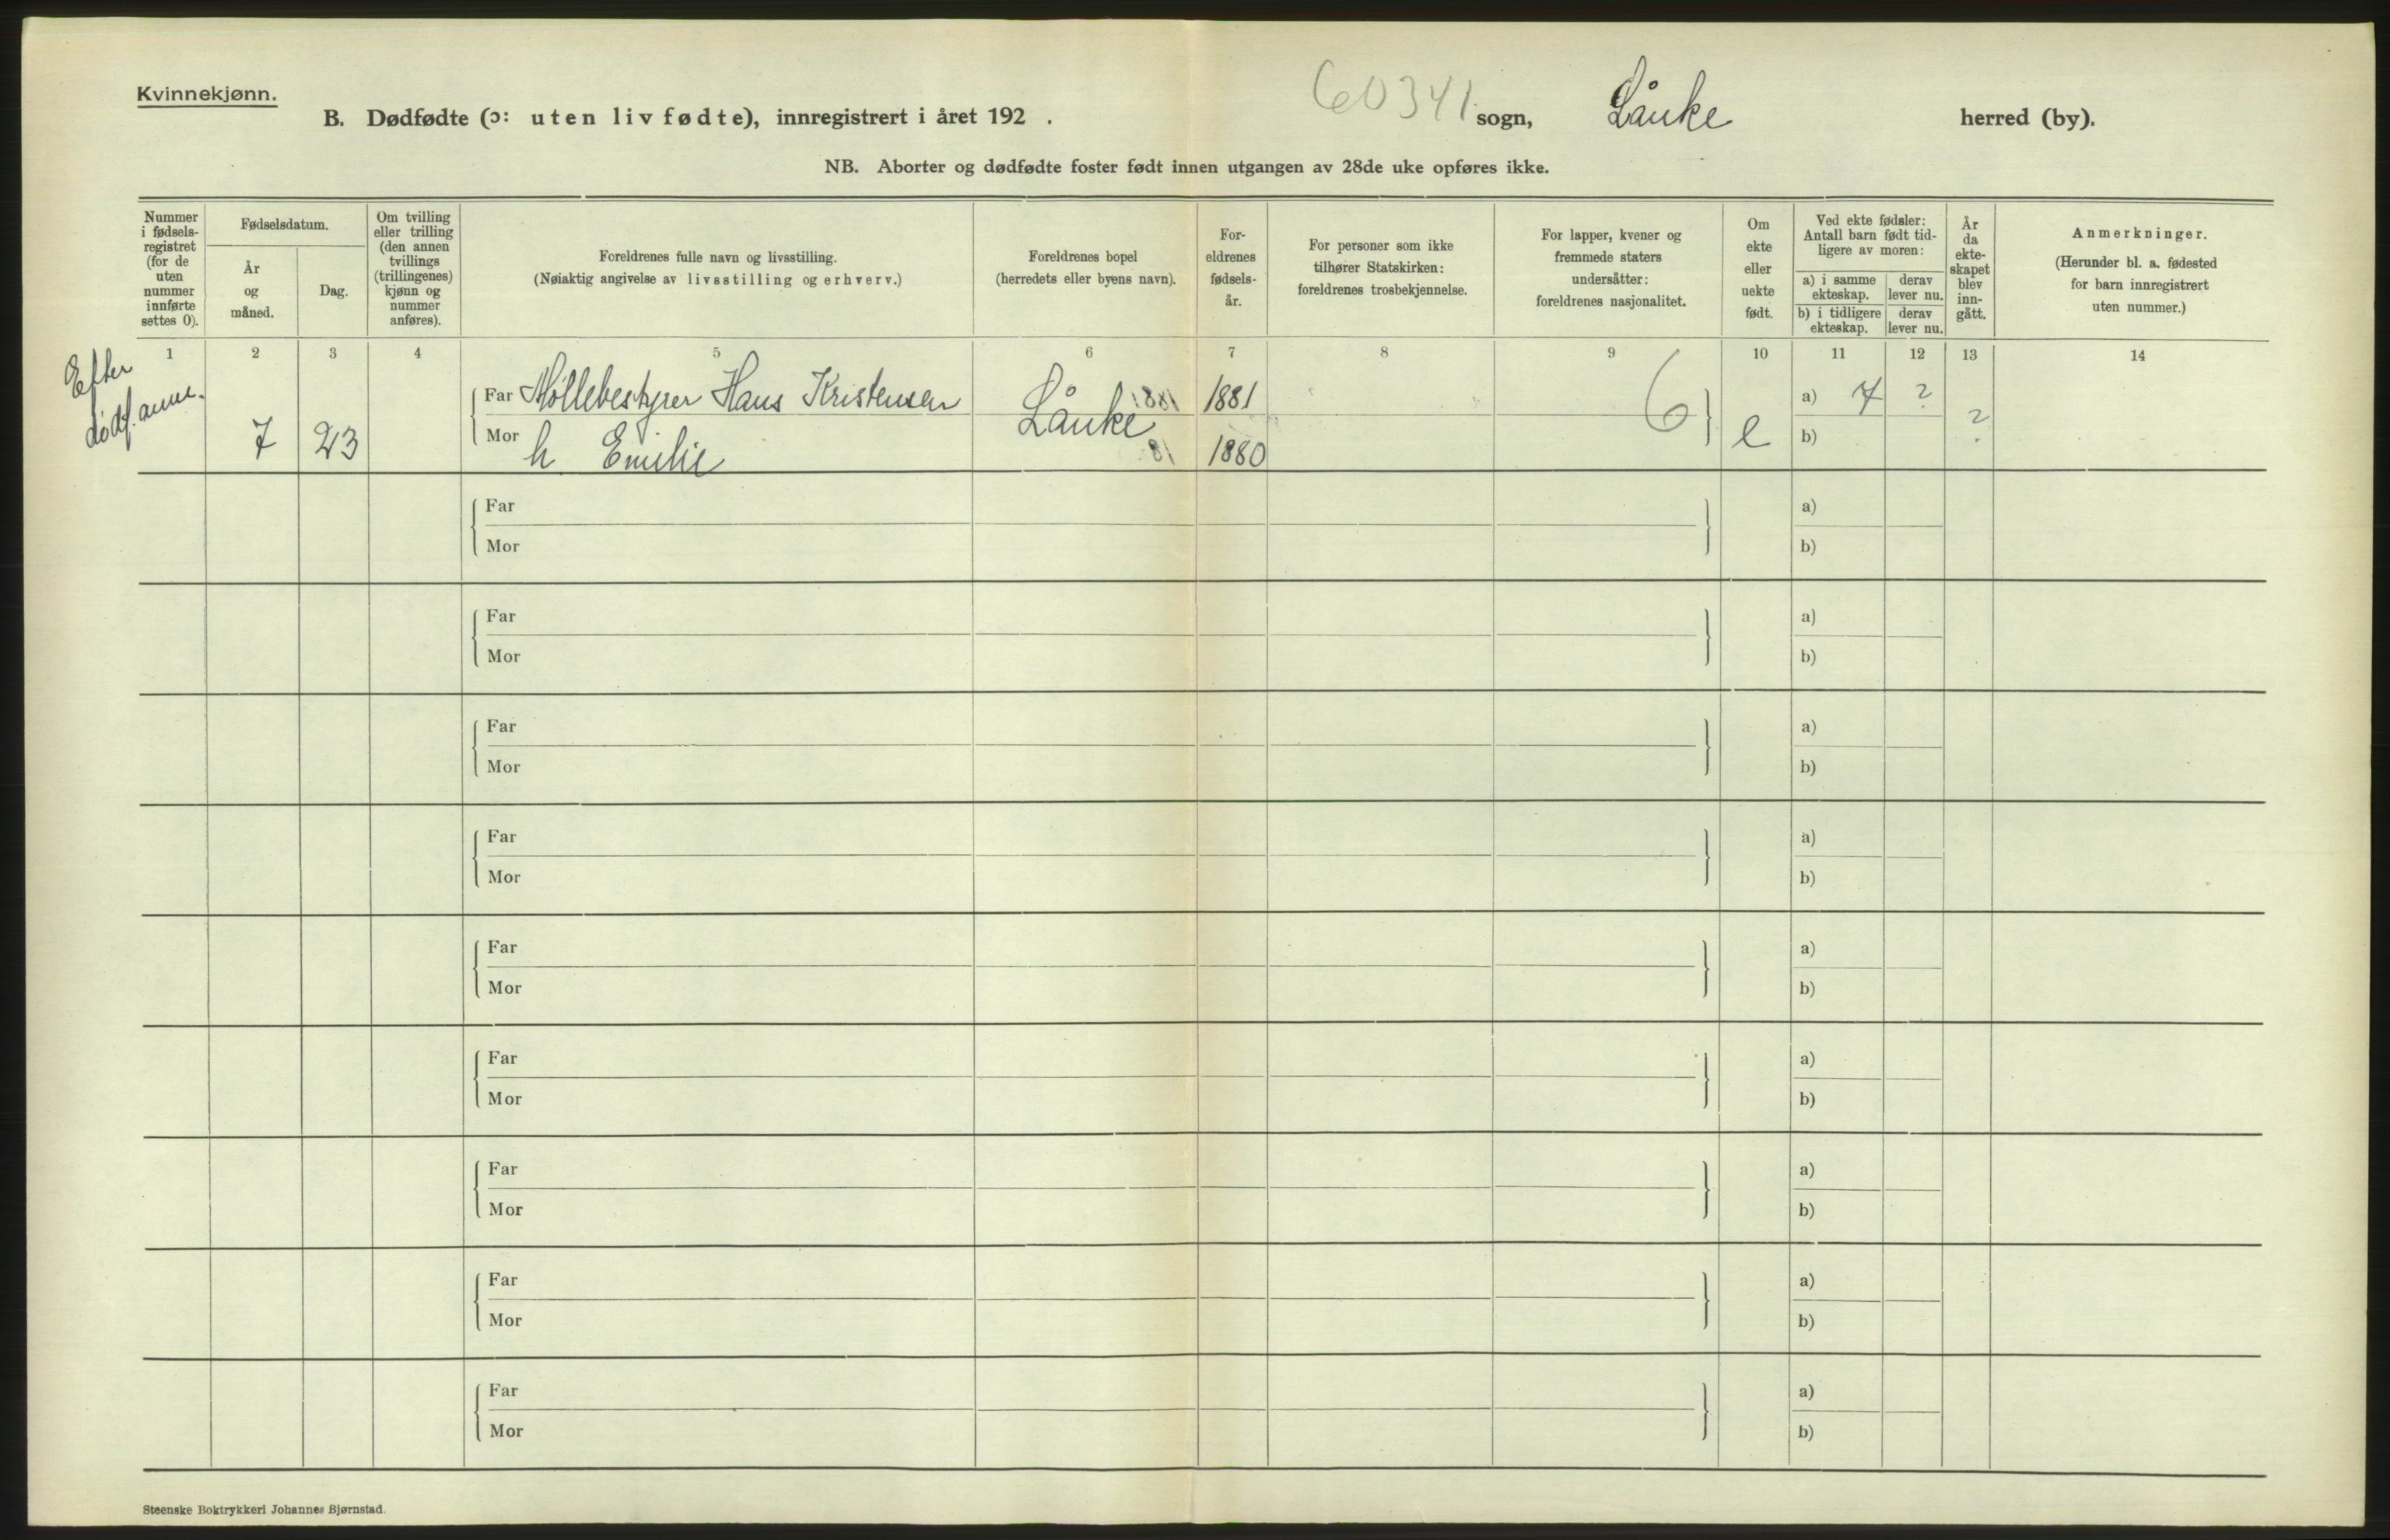 Kvinnekjønn.
B. Dødfødte (ɔ: uten liv fødte), innregistrert i året 192 . 60341 sogn, Lånke herred (by).
NB. Aborter og dødfødte foster født innen utgangen av 28de uke opføres ikke.
Nummer i fødsels-registret (for de uten nummer innførte settes 0).
Fødselsdatum.
År og måned.
Dag.
Om tvilling eller trilling (den annen tvillings (trillingenes) kjønn og nummer anføres).
Foreldrenes fulle navn og livsstilling.
(Nøiaktig angivelse av livsstilling og erhverv.)
Foreldrenes bopel
(herredets eller byens navn).
For-eldrenes fødsels-år.
For personer som ikke tilhører Statskirken: foreldrenes trosbekjennelse.
For lapper, kvener og fremmede staters undersåtter: foreldrenes nasjonalitet.
Om ekte eller uekte født.
Ved ekte fødsler: Antall barn født tid-ligere av moren:
a) i samme ekteskap. derav lever nu.
b) i tidligere ekteskap. derav lever nu.
År da ekte-skapet blev inn-gått.
Anmerkninger.
(Herunder bl. a. fødested for barn innregistrert uten nummer.)
1 2 3 4 5 6 7 8 9 10 11 12 13 14
Efter
dødf. anm.
7 23
Far Møllebestyrer Hans Kristensen 1881 1881 6 a) 7 ?
Lånke
Mor h Emilie 81 1880 e b) ?
Far a)
Mor b)
Far a)
Mor b)
Far a)
Mor b)
Far a)
Mor b)
Far a)
Mor b)
Far a)
Mor b)
Far a)
Mor b)
Far a)
Mor b)
Far a)
Mor b)
Steenske Boktrykkeri Johannes Bjørnstad.